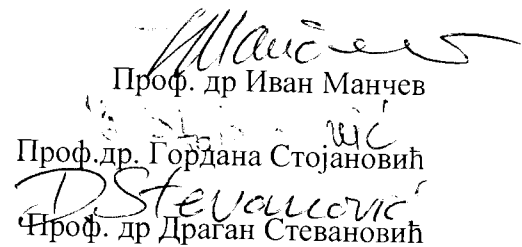 Проф. др Иван Манчев
Проф.др. Гордана Стојановић
D. Stevanović
Проф. др Драган Стевановић